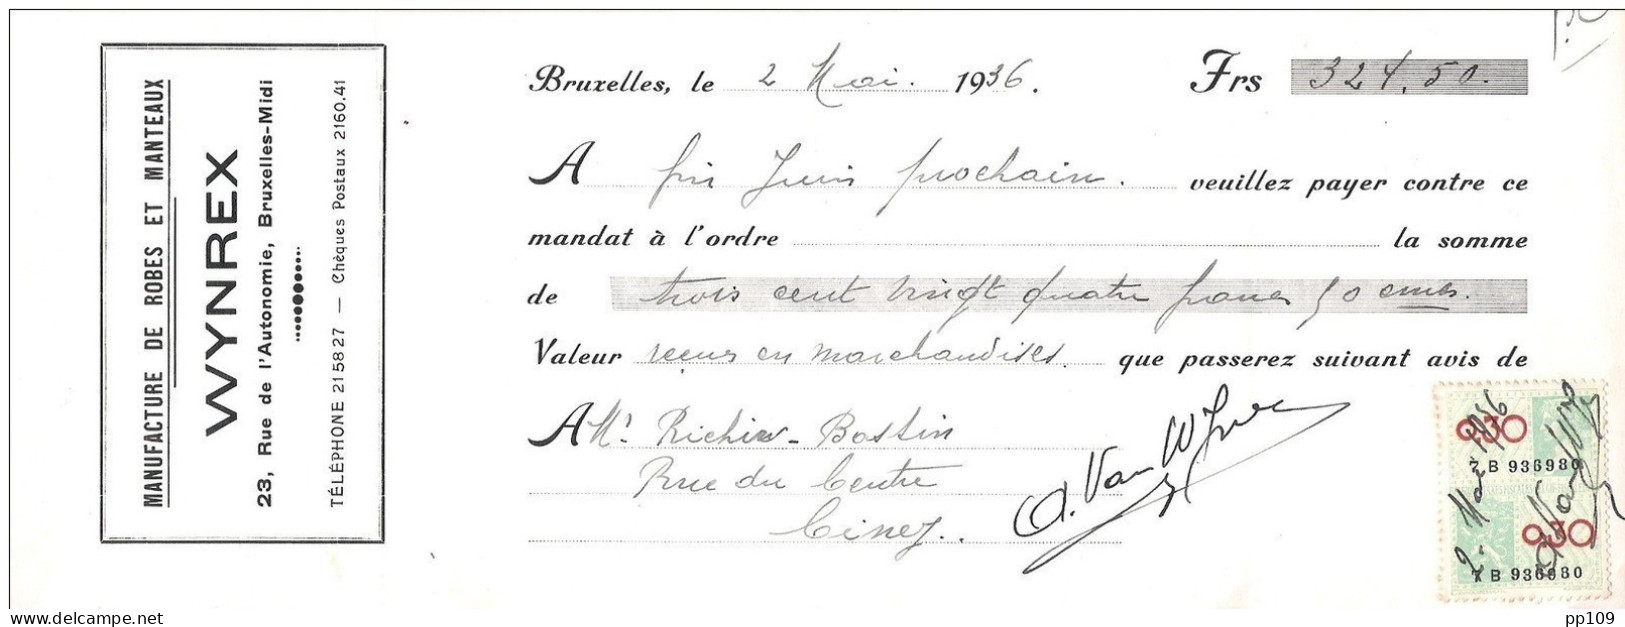 MANUFACTURE DE ROBES ET MANTEAUX
WYNREX
23, Rue de l'Autonomie, Bruxelles-Midi
TÉLÉPHONE 215827 — Chèques Postaux 2160.41
Bruxelles, le 2 Mai. 1936. Frs 324,50.
A fin Juin prochain. veuillez payer contre ce
mandat à l'ordre la somme
de trois cent vingt quatre francs 50 cmes.
Valeur reçus en marchandises. que passerez suivant avis de
A Mr Richir-Bastin
Rue du Centre
Ciney..
0,30
7 B 936980
0,30
7 B 936980
2- Mai 1936
delcampe.net
pp109